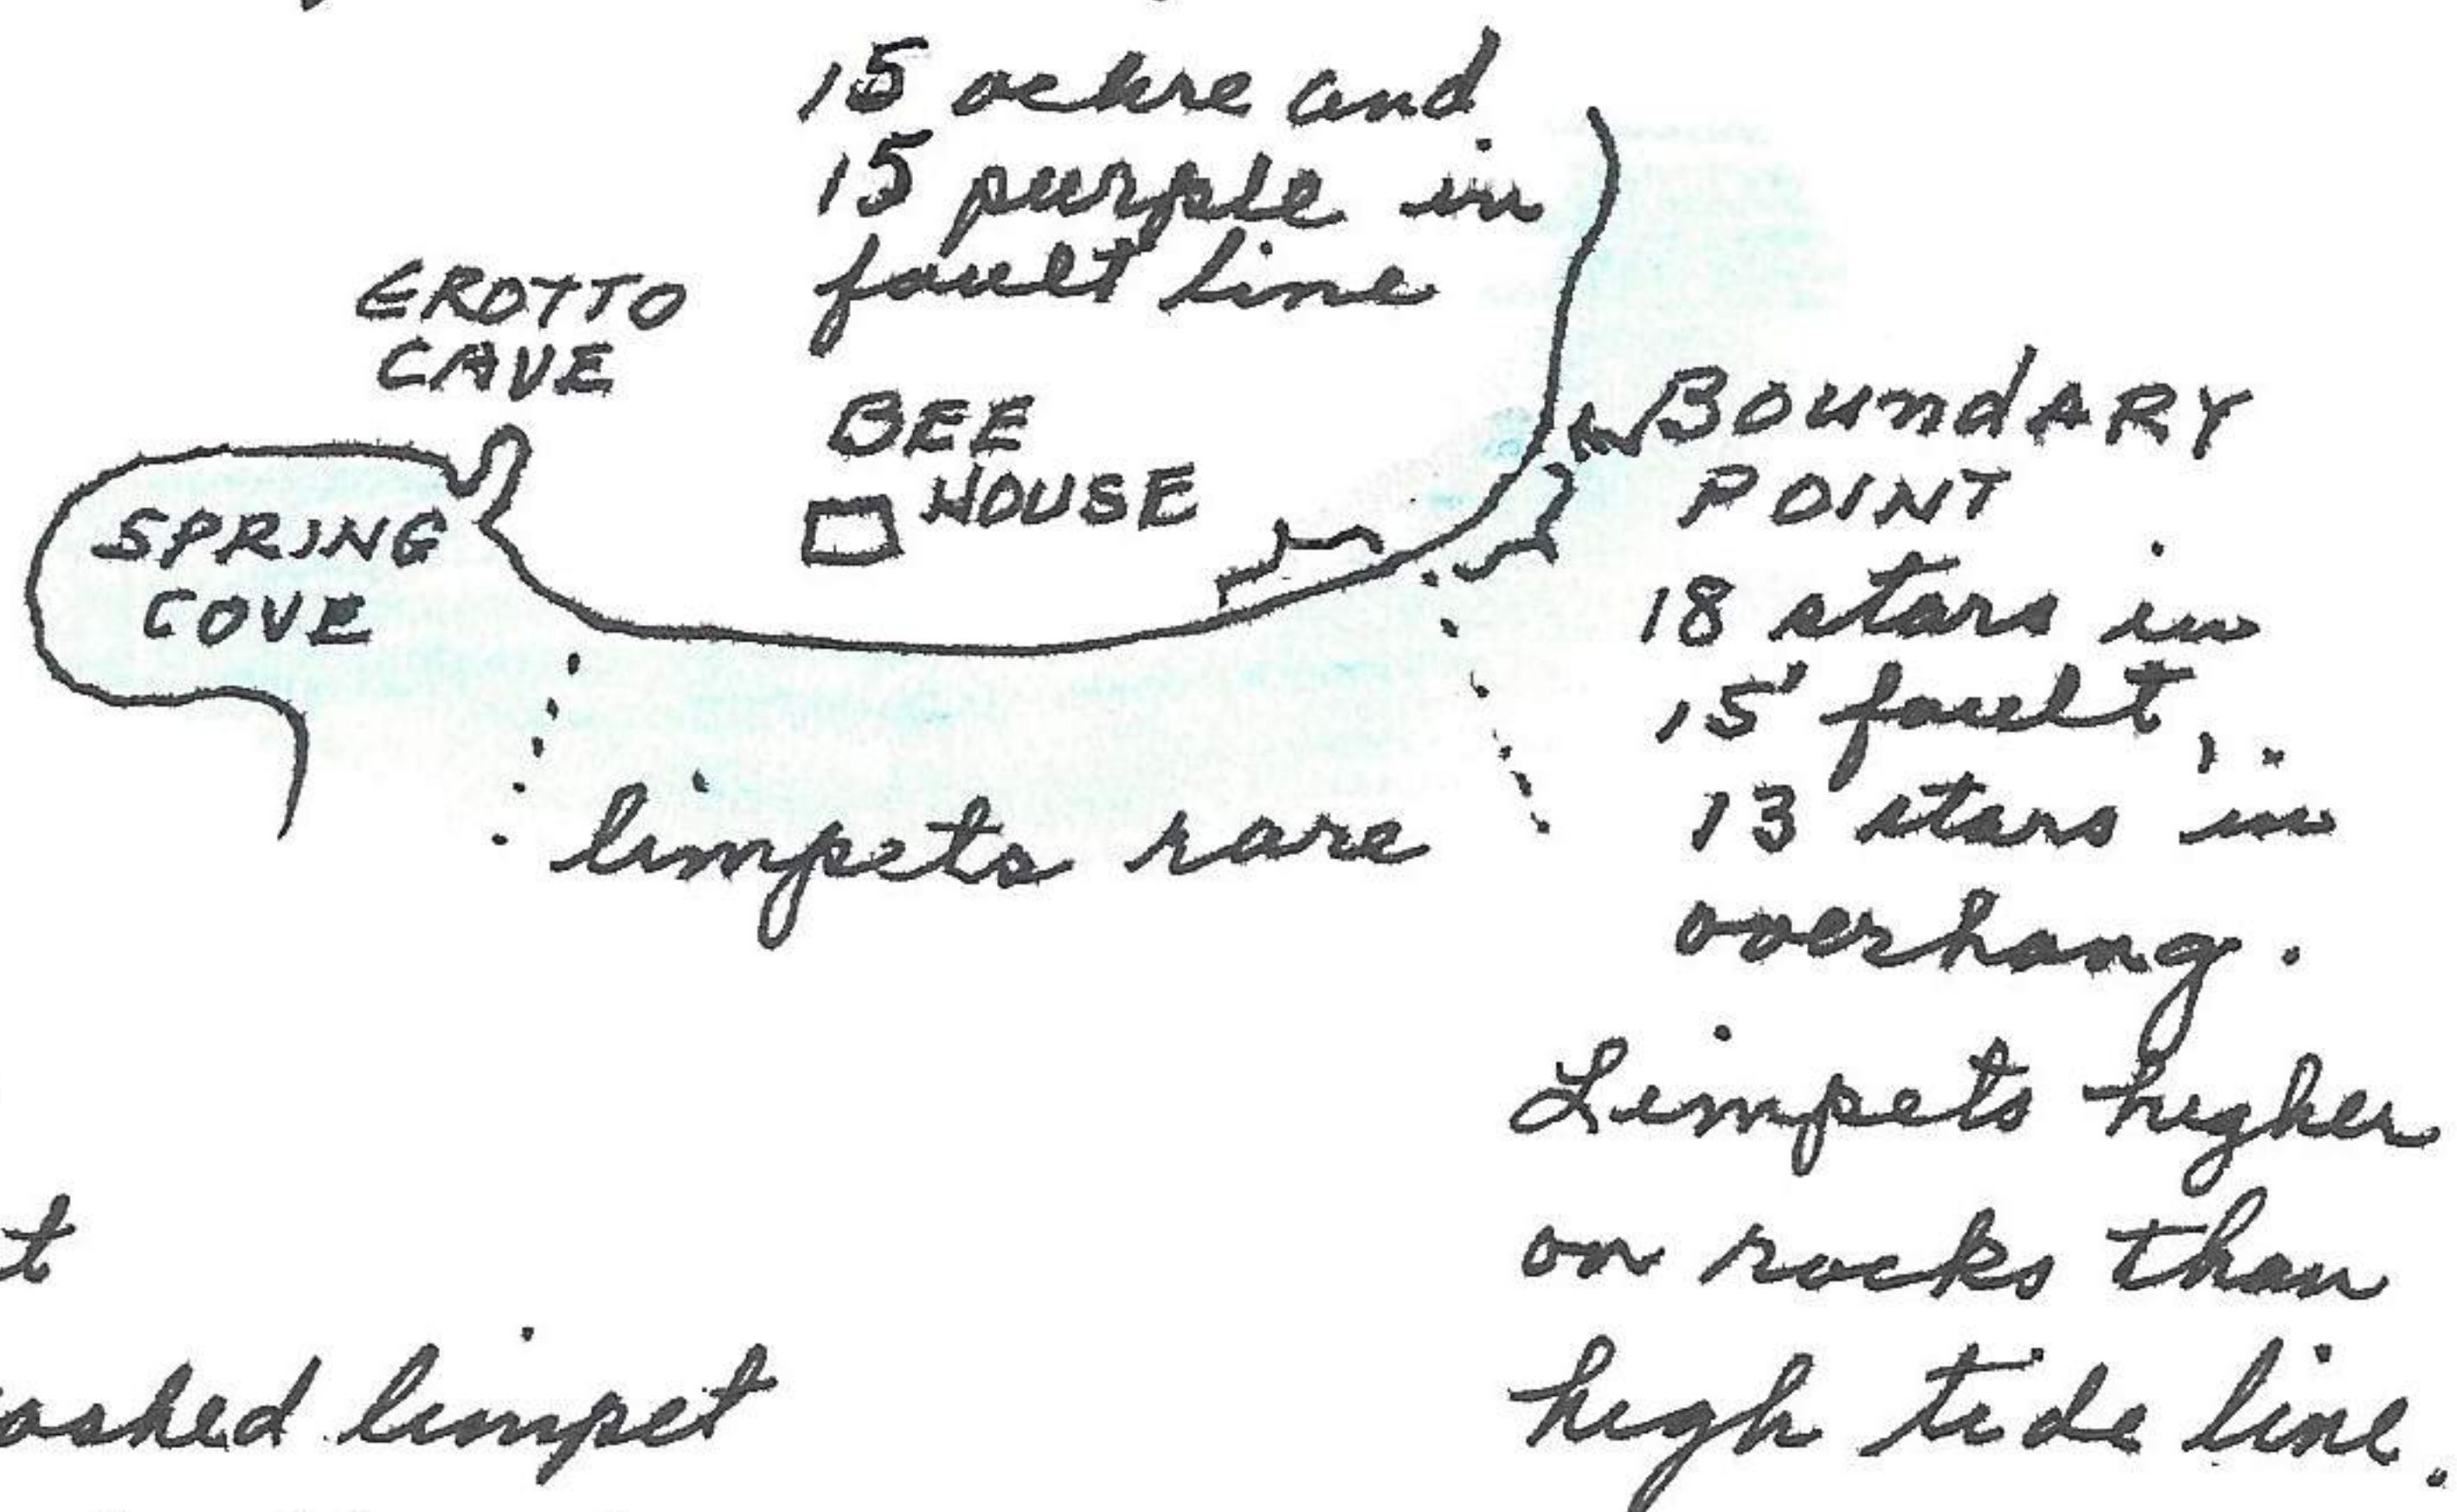 15 ochre and
15 purple in
fault line
GROTTO
CAVE
BEE
HOUSE
BOUNDARY
POINT
SPRING
COVE
18 stars in
15' fault,
13 stars in
overhang.
limpets rare
Limpets higher
on rocks than
high tide line.
t
oshed limpet